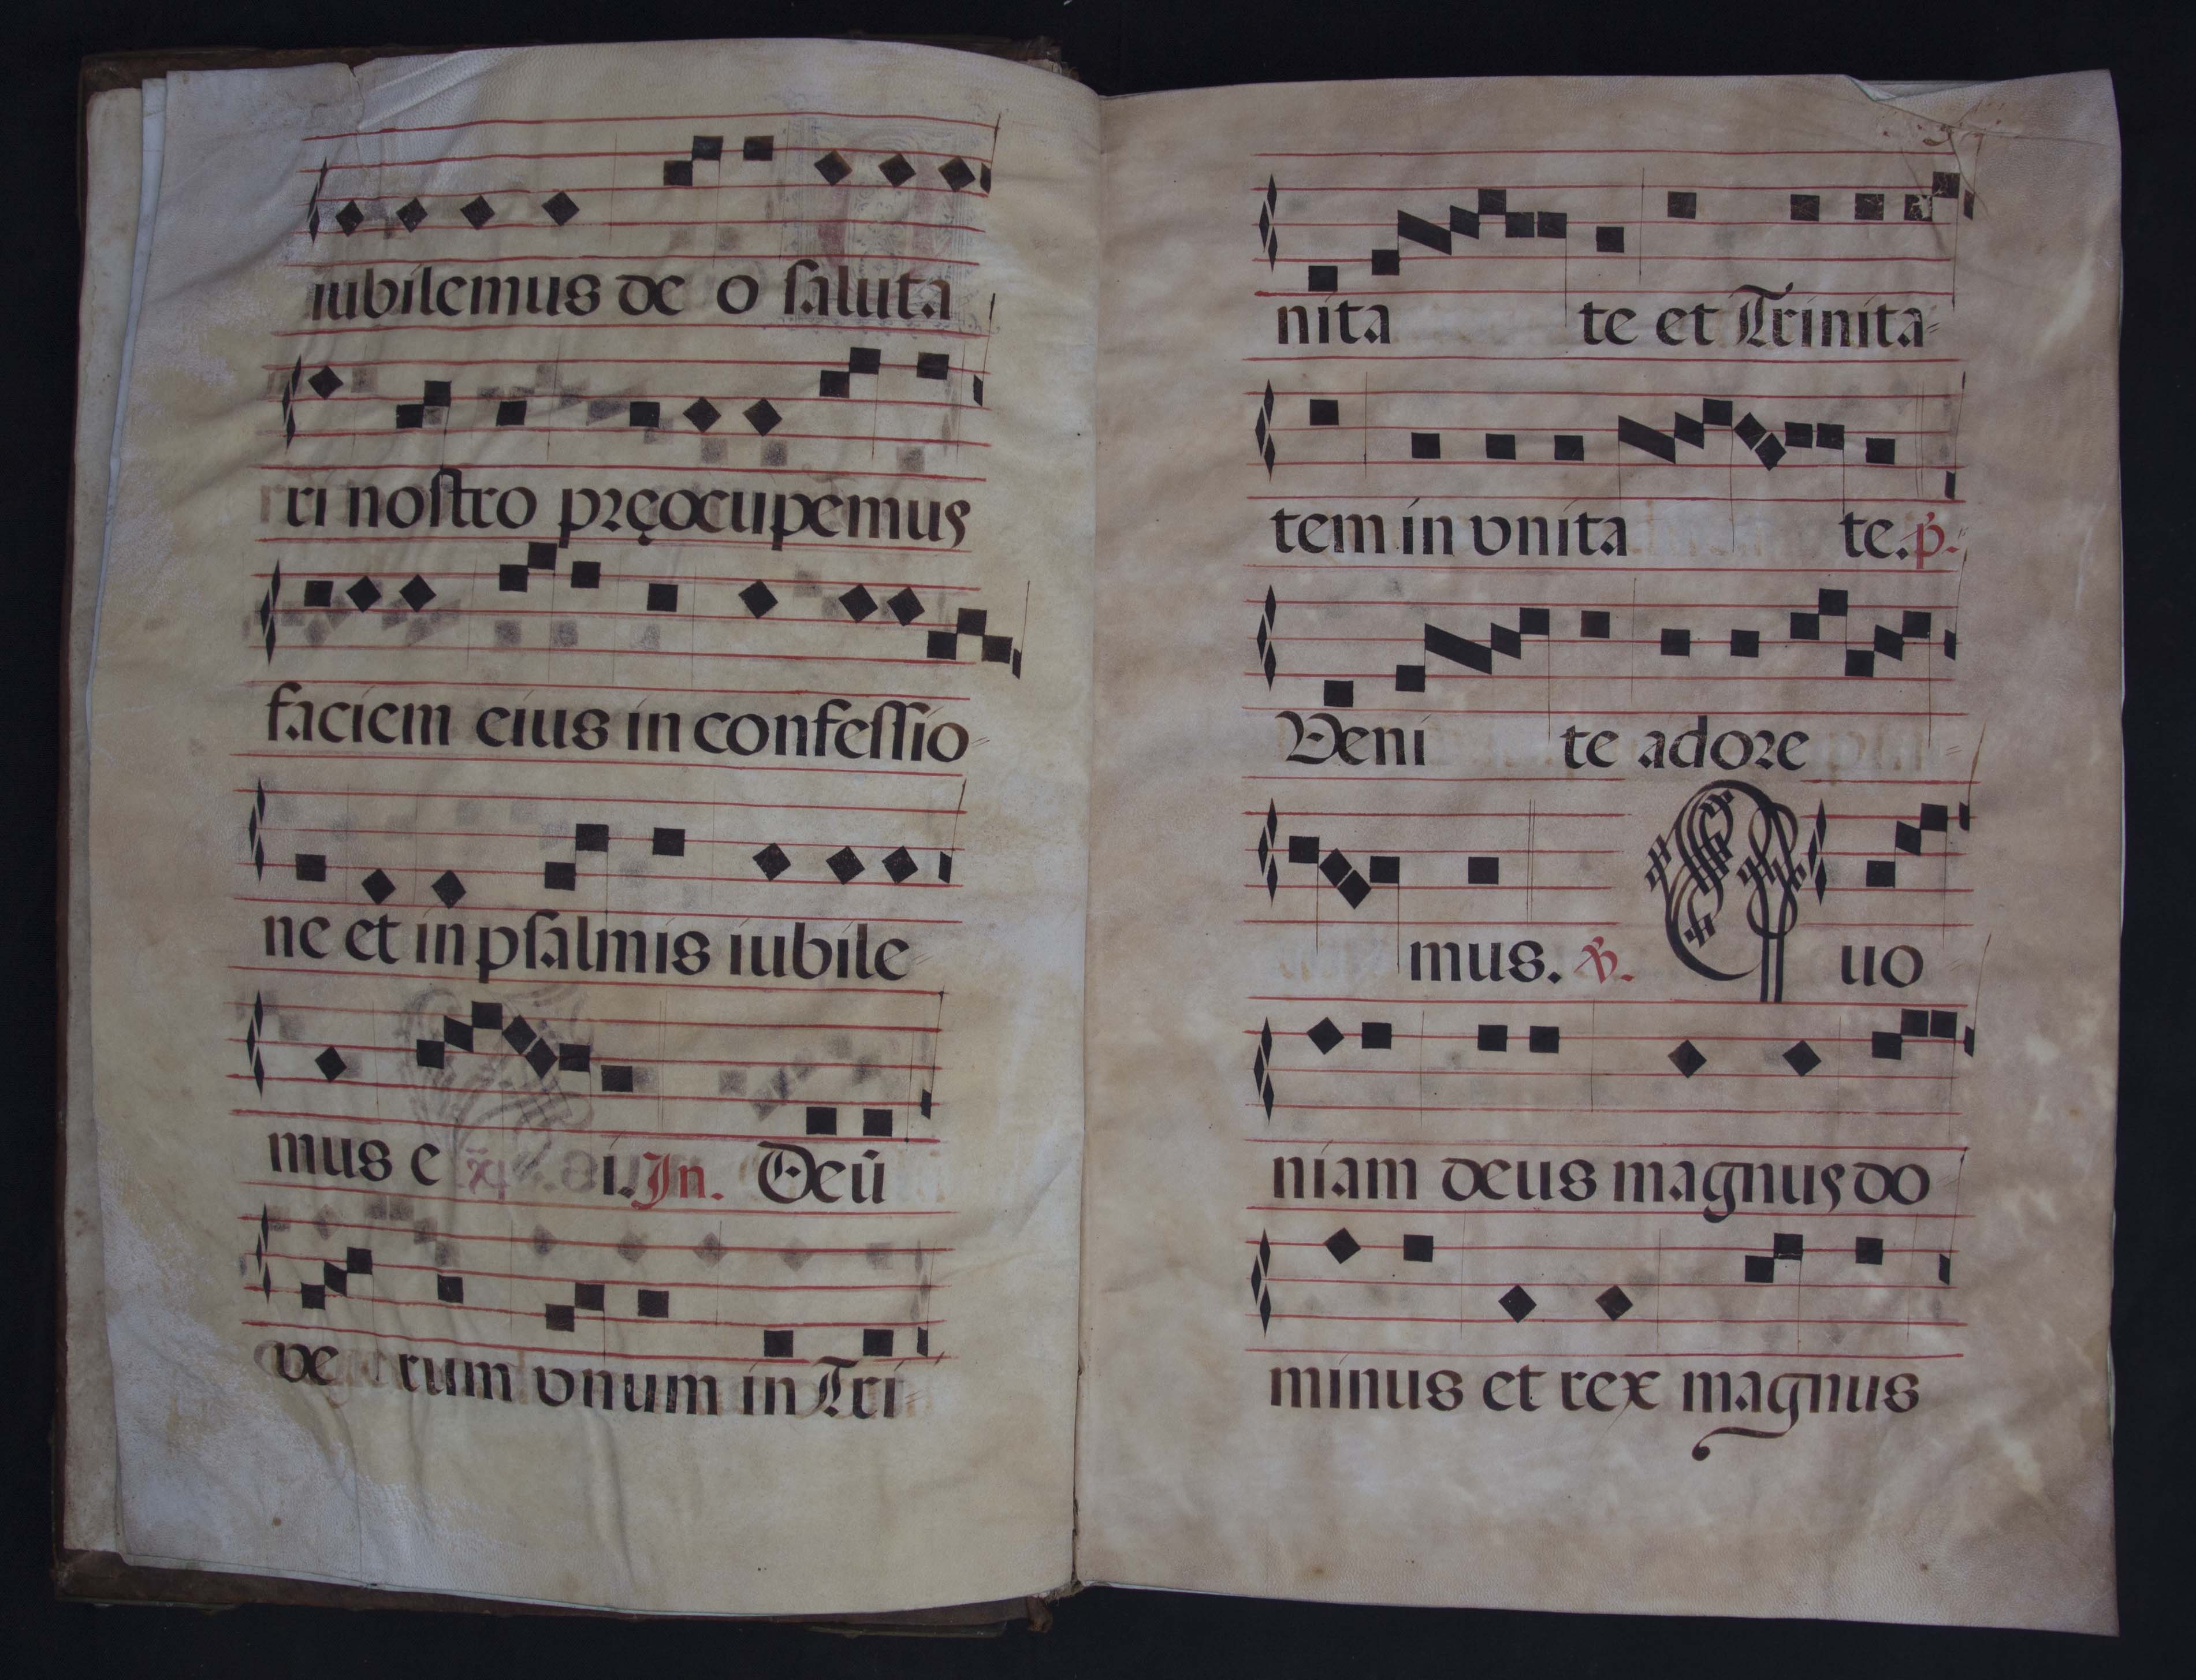 iubilemus de o saluta
ri nostro pręocupemus
faciem eius in confessio
ne et in psalmis iubile
mus e i. In. Deū
ve rum vnum in Tri
nita te et Trinita
tem in vnita te. p̄.
Veni te adore
mus. ℣. Quo
niam deus magnus do
minus et rex magnus